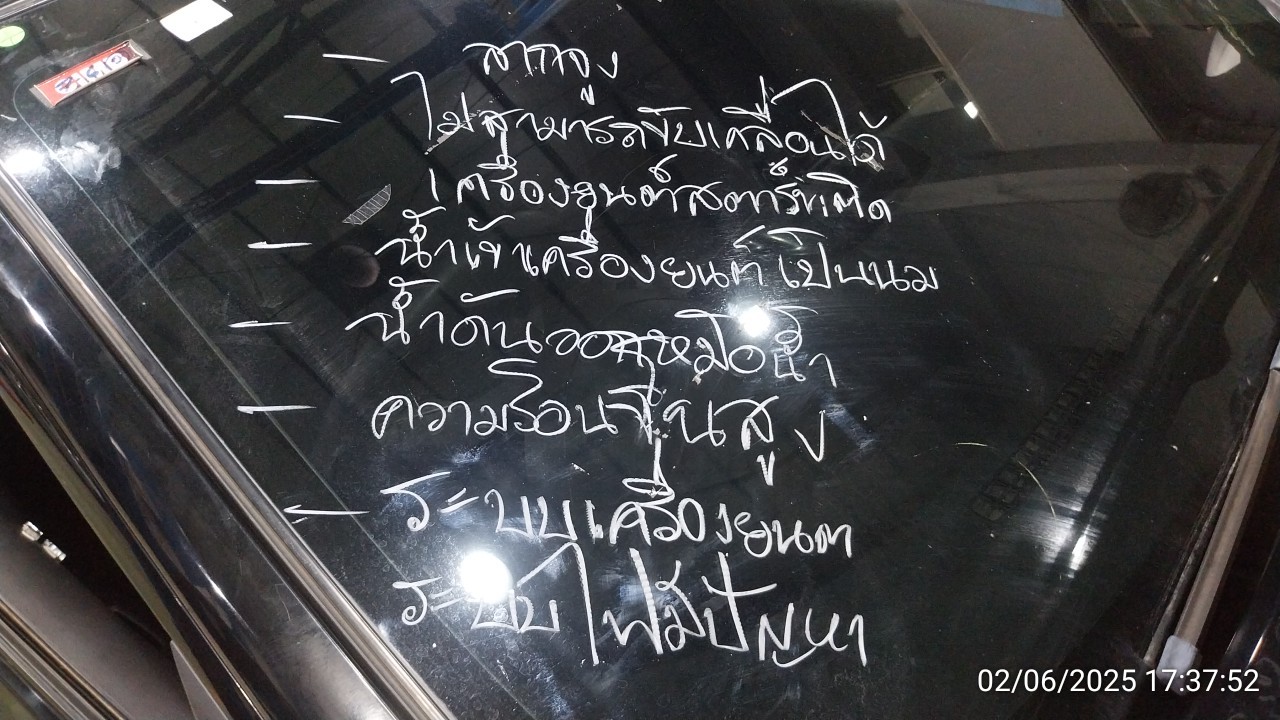 - ลากจูง
- ไม่สามารถขับเคลื่อนได้
- เครื่องยนต์สตาร์ทติด
- น้ำเข้าเครื่องยนต์เป็นนม
- น้ำดันออกหม้อน้ำ
- ความร้อนขึ้นสูง
- ระบบเครื่องยนต
ระบบไฟมีปัญหา
02/06/2025 17:37:52